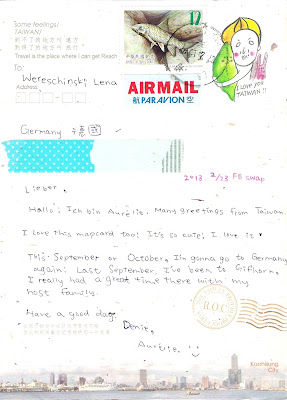 Some feelings/
TAIWAN/
到不了的地方叫遠方
Travel is the place where i can get Reach
12
To:
Wereschinski Lena
Address:
AIR MAIL
航 PAR AVION 空
I love you
TAIWAN!!
Germany 德國
2013. 2/23 FB swap
Lieber,
Hallo! Ich bin Aurélie. Many greetings from Taiwan.
I love this mapcard too! It's so cute! I love it ♥
This September or October, I'm gonna to Germany
again! Last September, I've been to Gifhorn.
I really had a great time there with my
host family.
Have a good day.
Deine,
Aurélie. :)
R.O.C
Kaohsiung
City